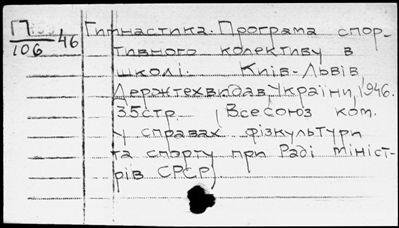 П/106 46
Гимнастика. Програма спор-
тивного колективу в
школі. Київ-Львів,
Держтехвидав України, 1946.
35стр. (Всесоюз ком.
у справах фізкультури
та спорту при Раді Мініст-
рів СРСР)